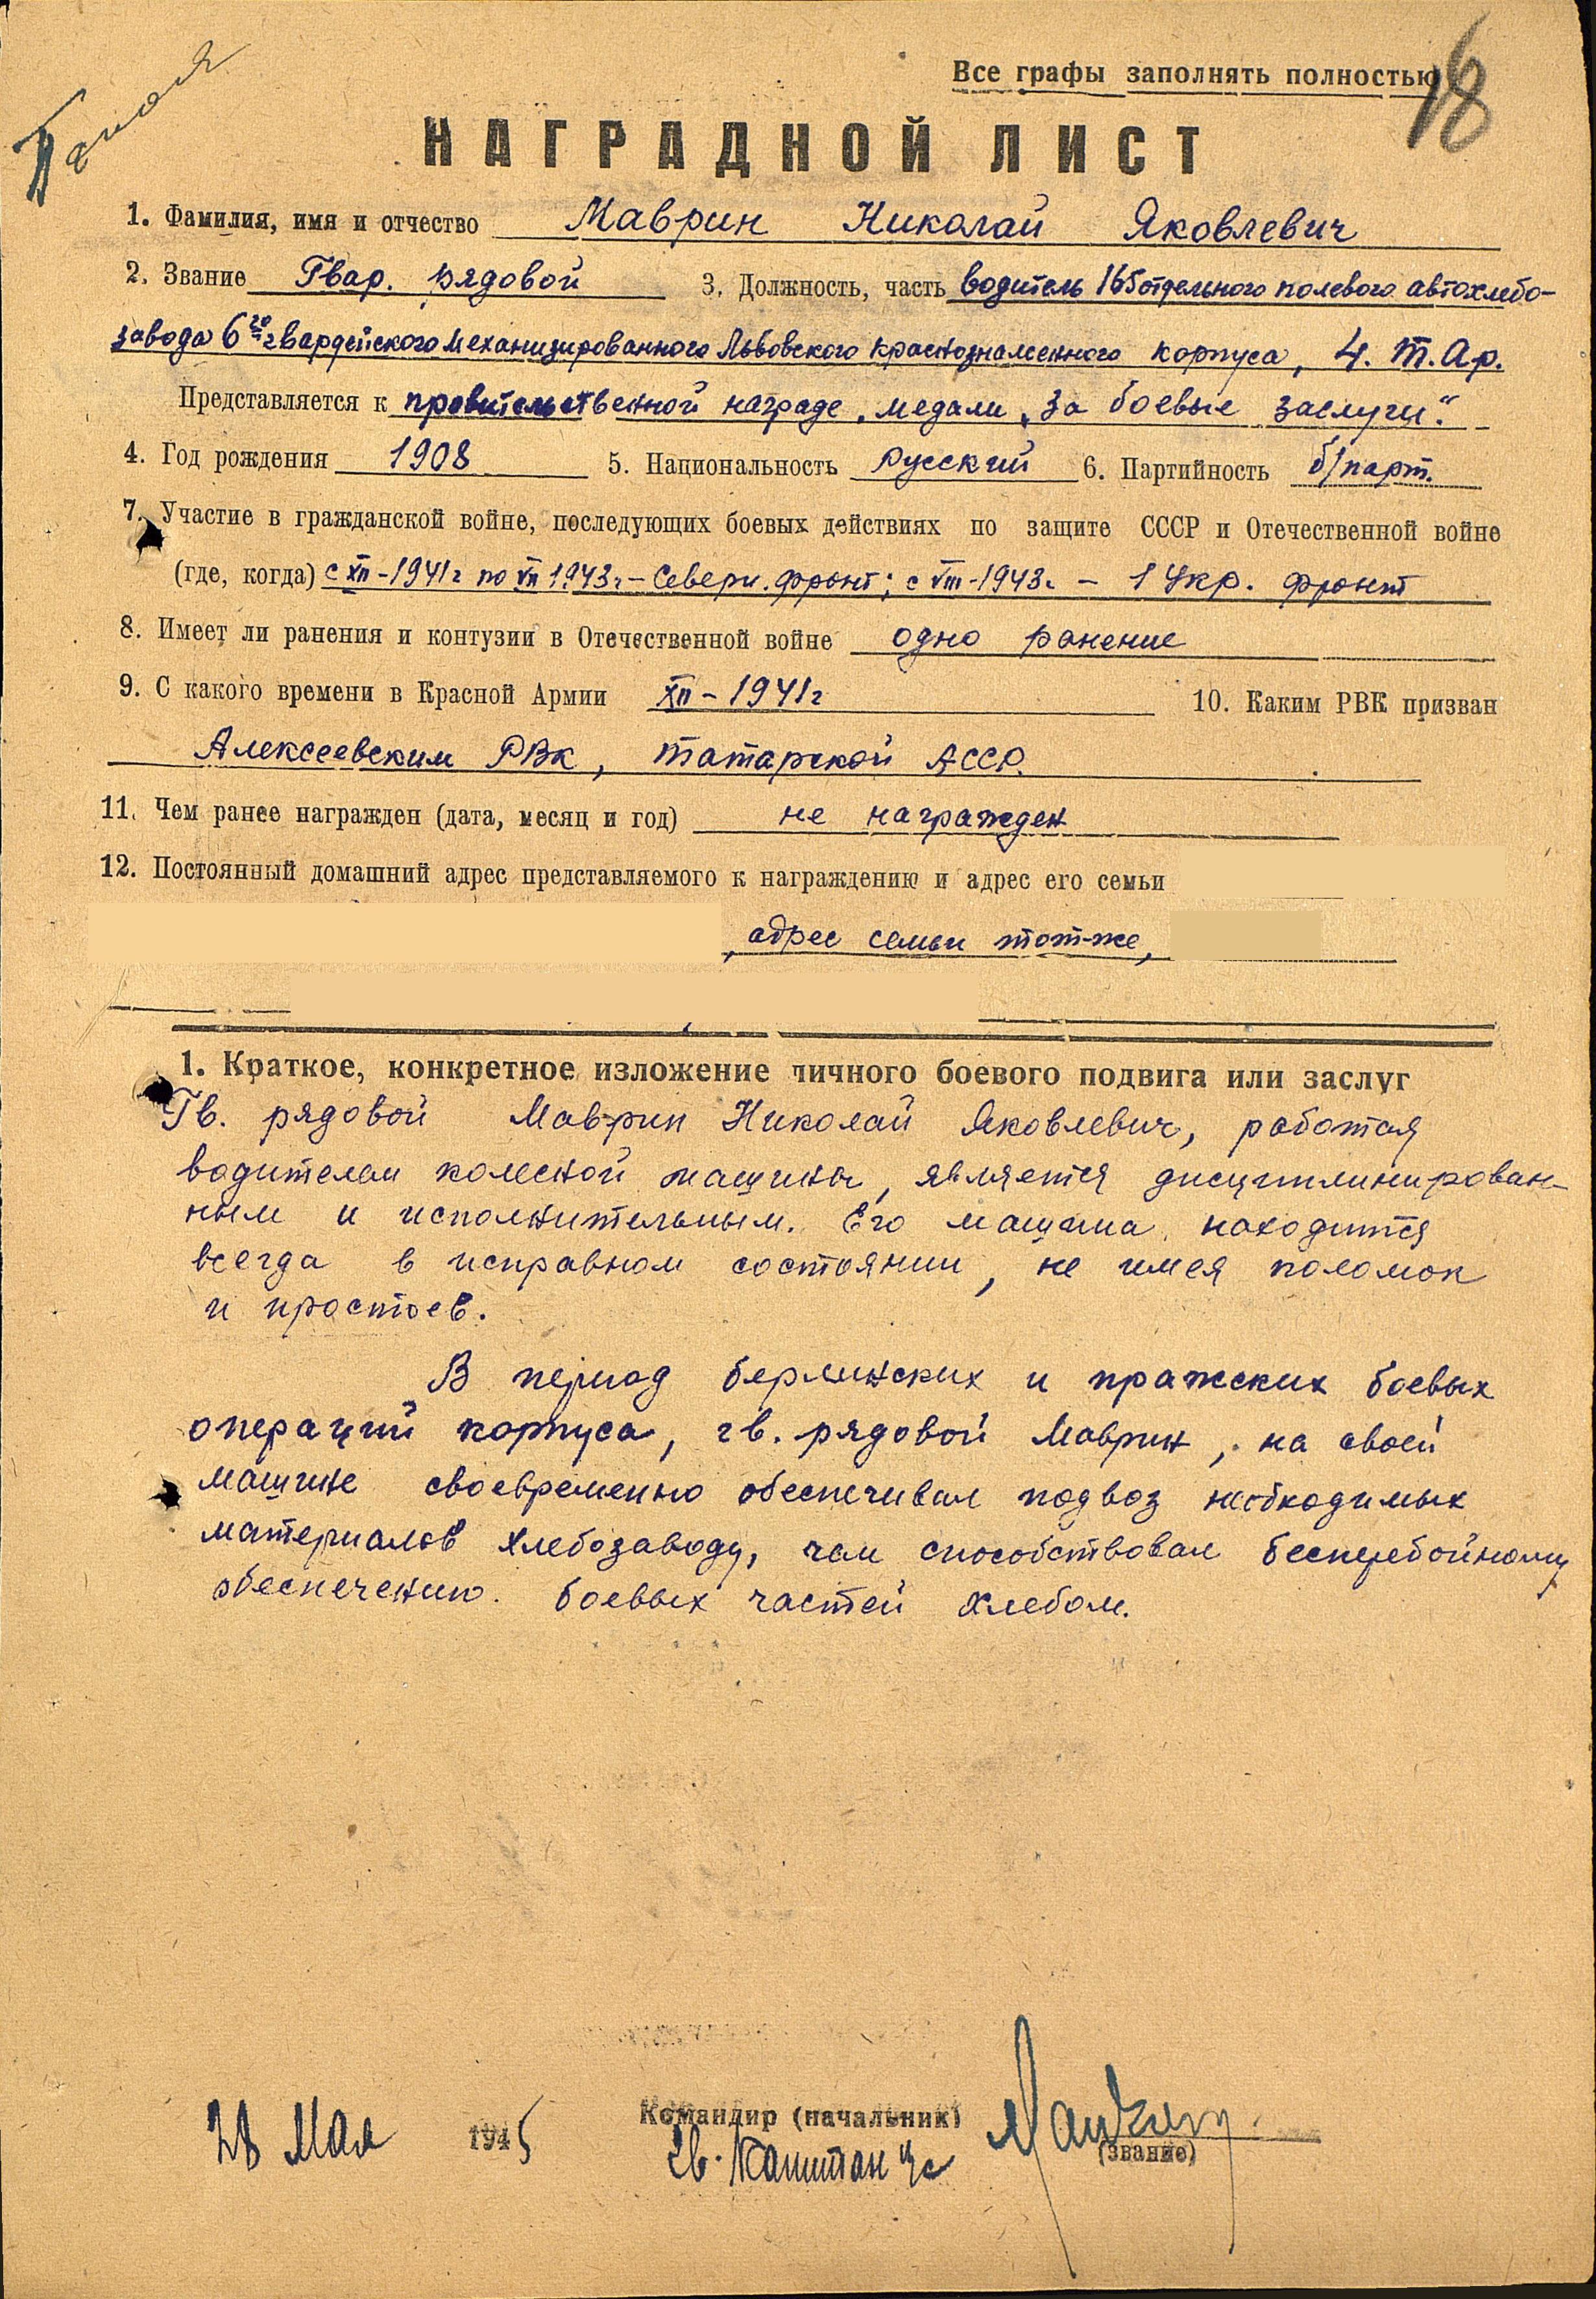 Все графы заполнять полностью
18
НАГРАДНОЙ ЛИСТ
1. Фамилия, имя и отчество Маврин Николай Яковлевич
2. Звание Гвар. рядовой 3. Должность, часть водитель 165 отдельного полевого автохлебо-
завода 6го гвардейского механизированного Львовского краснознаменного корпуса, 4. Т. Ар.
Представляется к правительственной награде, медали „За боевые заслуги".
4. Год рождения 1908 5. Национальность Русский 6. Партийность б/парт.
7. Участие в гражданской войне, последующих боевых действиях по защите СССР и Отечественной войне
(где, когда) с XII-1941г по VII 1943г - Северн. фронт; с VIII-1943г - 1 Укр. фронт
8. Имеет ли ранения и контузии в Отечественной войне одно ранение
9. С какого времени в Красной Армии XII-1941г 10. Каким РВК призван
Алексеевским РВК, Татарской АССР.
11. Чем ранее награжден (дата, месяц и год) не награжден
12. Постоянный домашний адрес представляемого к награждению и адрес его семьи
, адрес семьи тот-же,
1. Краткое, конкретное изложение личного боевого подвига или заслуг
Гв. рядовой Маврин Николай Яковлевич, работая
водителем колесной машины, является дисциплинирован-
ным и исполнительным. Его машина находится
всегда в исправном состоянии, не имея поломок
и простоев.
В период берлинских и пражских боевых
операций корпуса, гв. рядовой Маврин, на своей
машине своевременно обеспечивал подвоз необходимых
материалов хлебозаводу, чем способствовал бесперебойному
обеспечению боевых частей хлебом.
28 Мая 1945 Командир (начальник)
гв. Капитан (звание)